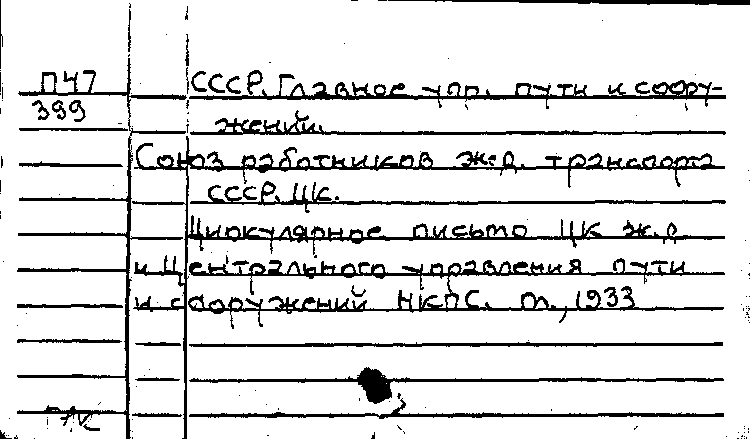 П47 СССР. Главное упр. пути и соору-
399 жений.
Союз работников ж.д. транспорта
СССР. ЦК.
Циркулярное письмо ЦК ж.д.
и Центрального управления пути
и сооружений НКПС. М., 1933